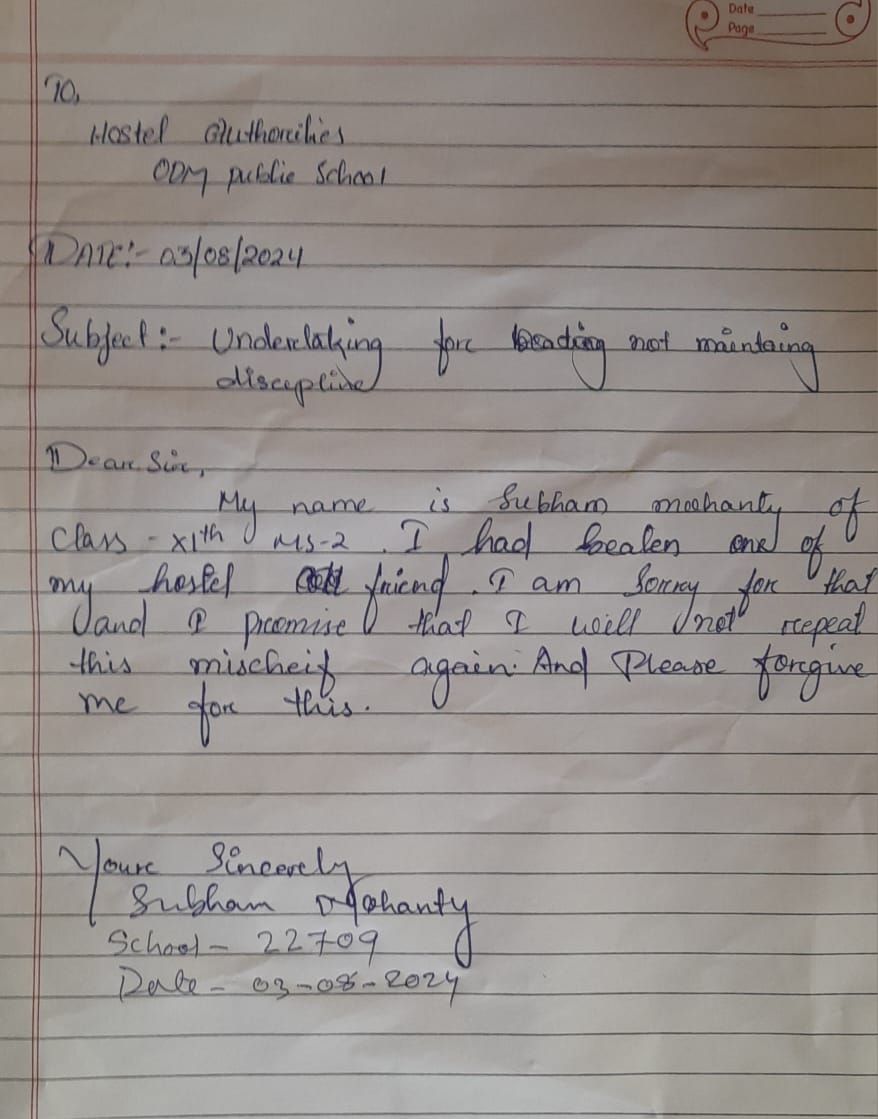 Date
Page
To,
Hostel Authorities
ODM public School
DATE:- 03/08/2024
Subject:- Undertaking for beading not maintaing
discipline
Dear Sir,
My name is Subham moohanty of
class - XIth MS-2. I had beaten one of
my hostel friend. I am Sorry for that
and I promise that I will not repeat
this mischeif again. And Please forgive
me for this.
Your Sincerely
Subham Mohanty
School - 22709
Date - 03-08-2024